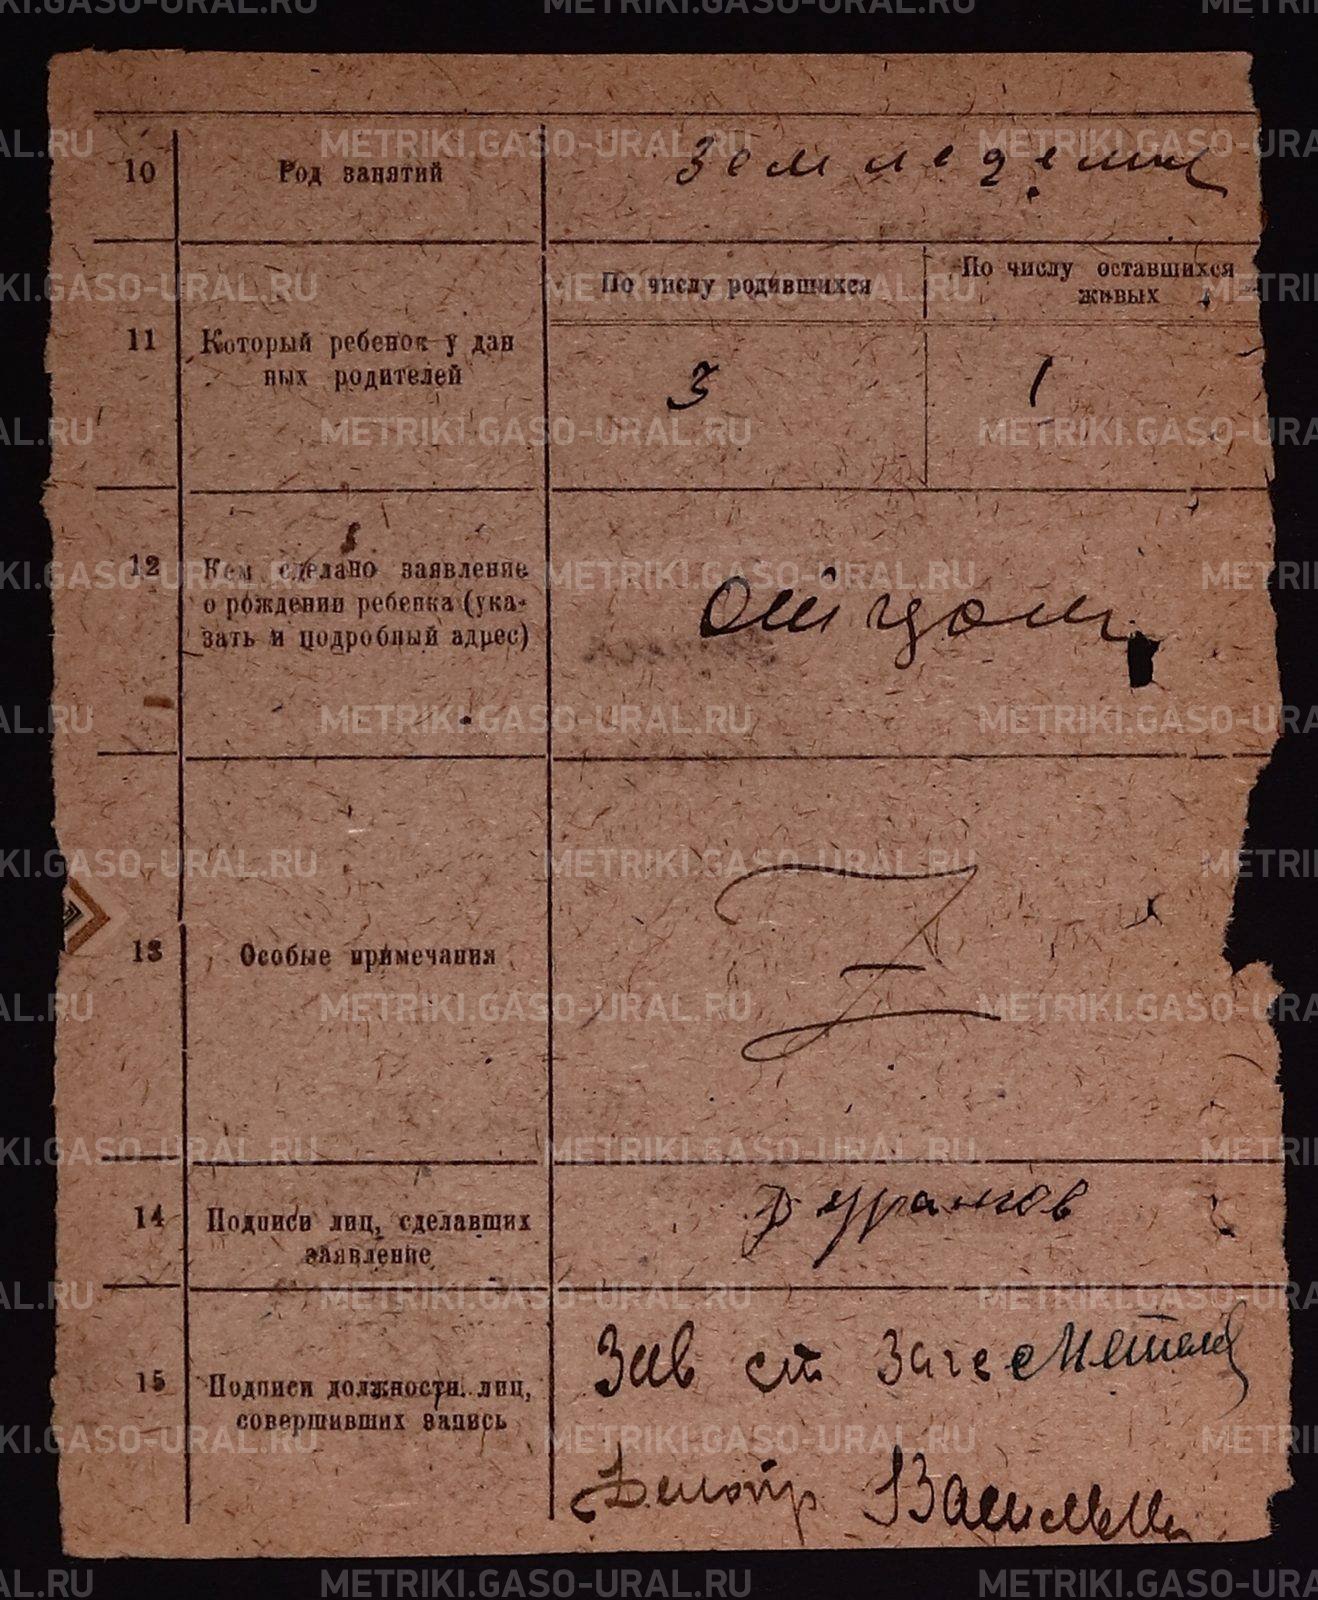 10
Род занятий
земледелие
11
Который ребенок у дан
ных родителей
По числу родившихся
По числу оставшихся
живых
3
1
12
Кем сделано заявление
о рождении ребенка (ука-
зать и подробный адрес)
Отцом
13
Особые примечания
Z
14
Подписи лиц, сделавших
заявление
15
Подписи должностн. лиц,
совершивших запись
Зав ст Загс
Делопр
METRIKI.GASO-URAL.RU